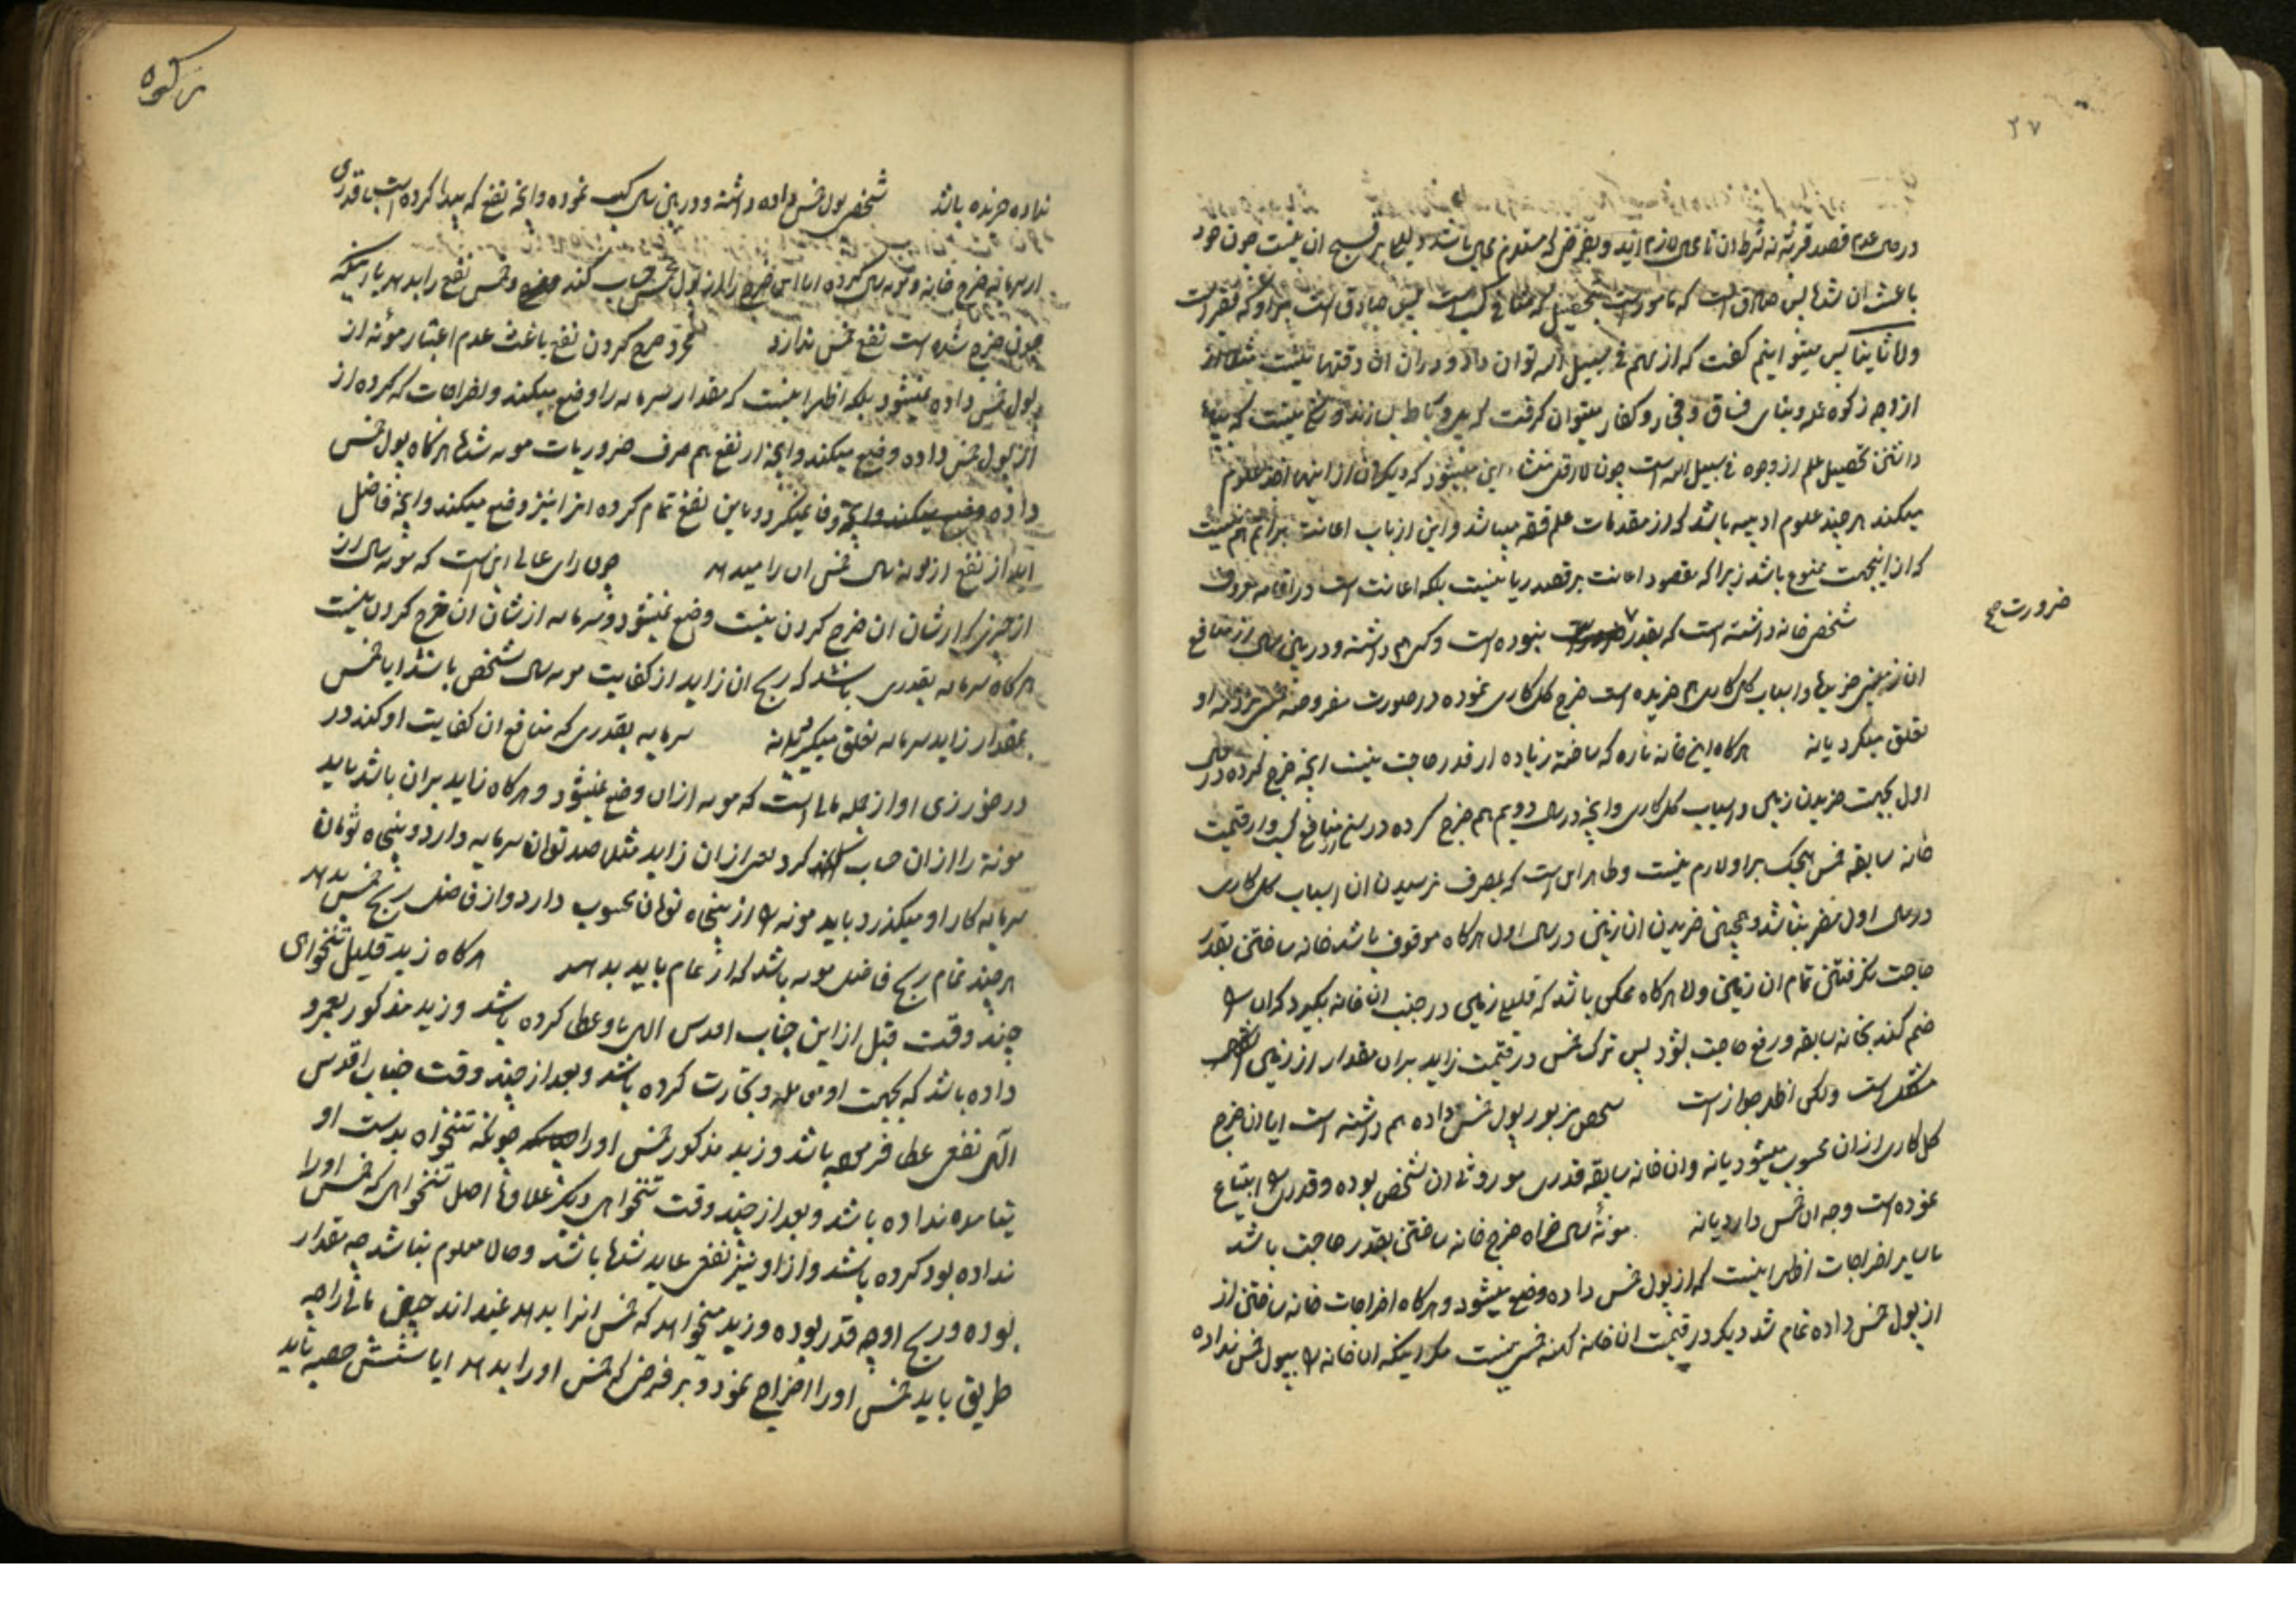 ۲۷
در صورت عدم قصد قربة نه شرط آن
باعث آن شده پس صادق است که مامور است بتحصیل که منافی کسب است پس صادق است بر او که فقیر است
و اما ثانیا پس میتوانیم گفت که از سهم فی سبیل الله توان داد و در آن این دقتها نیست
از وجه زکوة عمله و بنای فساق و فجار و کفار میتوان گرفت که پل و رباط بسازند و شکی نیست که
دانستن تحصیل علم از وجوه فی سبیل الله است چون لااقل منشاء این میشود که دیگران از اینها اخذ علوم
میکنند هر چند علوم ادبیه باشد که از مقدمات علم فقه میباشد و این از باب اعانت بر اثم هم نیست
که از اینجهت ممنوع باشد زیرا که مقصود اعانت بر قصد ریا نیست بلکه اعانت است در اقامه معروف
شخصی خانه داشته است که بقدر نبوده است و کسب هم داشته و در بین سال از منافع
ضرورت صح
آن زمینی خریده و اسباب گل کاری هم خریده است خرج گل کاری نموده در صورت مفروضه خمس بذمه او
تعلق میگیرد یا نه هرگاه این خانه تازه که ساخته زیاده از قدر حاجت نیست آنچه خرج کرده در سال
اول بجهت خریدن زمین و اسباب گل کاری و آنچه در سال دویم هم خرج کرده در بنا از منافع کسب و از قیمت
خانه سابقه خمس هیچیک بر او لازم نیست و ظاهر این است که بمصرف نرسیدن آن اسباب گل کاری
در سال اول مضر نباشد و همچنین خریدن آن زمین در سال اول هرگاه موقوف باشد خانه ساختن بقدر
حاجت بگرفتن تمام آن زمین و لا هرگاه ممکن باشد که قلیلی زمین در جنب آن خانه بگیرد که آن را
ضم کند بخانه سابقه و رفع حاجت بشود پس ترک خمس در قیمت زاید بر آن مقدار از زمین
مشکل است ولکن اظهر جواز است شخص مزبور پول خمس داده هم داشته است آیا آن خرج
گل کاری از آن محسوب میشود یا نه و آن خانه سابقه قدری موروثی آن شخص بوده و قدری را ابتیاع
نموده است وجه آن خمس دارد یا نه مونه سال خواه خرج خانه ساختن بقدر حاجت باشد
یا سایر اخراجات اظهر اینست که از پول خمس داده وضع میشود و هرگاه اخراجات خانه ساختن از
از پول خمس داده تمام شد دیگر در قیمت آن خانه کهنه خمس نیست مگر اینکه آن خانه را بپول خمس نداده
زکوة
نداده خریده باشد شخصی پول خمس داده داشته و در بین سال کسب نموده و آنچه نفع که پیدا کرده است با قدری
از سرمایه خرج خانه و مونه سال کرده آیا این خرج را از پول خمس حساب کند و خمس نفع را بدهد یا اینکه
چون خرج شده است نفع خمس ندارد مجرد خرج کردن نفع باعث عدم اعتبار مؤنه از
پول خمس داده نمیشود بلکه اظهر اینست که مقدار سرمایه را وضع میکند و اخراجات که کرده از
از پول خمس داده وضع میکند و آنچه از نفع هم صرف ضروریات مونه شده هرگاه پول خمس
داده وفا نمیکرد و باین نفع تمام کرده آنرا نیز وضع میکند و آنچه فاضل
آید از نفع از مونه سال خمس آن را میدهد چون رای عالی این است که مونه سال از
از چیزی که از شان آن خرج کردن نیست وضع نمیشود و سرمایه از شان آن خرج کردن نیست
هرگاه سرمایه بقدری باشد که ربح آن زاید از کفایت مونه سال شخص باشد آیا خمس
بمقدار زاید سرمایه تعلق میگیرد یا نه سرمایه بقدری که منافع آن کفایت او کند در
در خور زی او از جمله مالی است که مونه از آن وضع نمیشود و هرگاه زاید بر آن باشد باید
مونة را از آن حساب کرد یعنی از آن زاید مثلا صد تومان سرمایه دارد و پنجاه تومان
سرمایه کار او میگذرد باید مونه را از پنجاه تومان محسوب دارد و از فاضل ربح خمس بدهد
هر چند تمام ربح فاضل مونه باشد که از تمام باید بدهد هرگاه زید قلیل تنخواهی
چند وقت قبل از این جناب اقدس الهی باو عطا کرده باشد و زید مذکور بعمرو
داده باشد که بجهت او معامله و تجارت کرده باشد و بعد از چند وقت جناب اقدس
الهی نفعی عطا فرموده باشد و زید مذکور خمس او را چونکه تنخواه بدست او
نیامده نداده باشد و بعد از چند وقت تنخواهی دیگر علاوه اصل تنخواهی که خمس او را
نداده بود کرده باشد و از او نیز نفعی عاید شده باشد و حالا معلوم نباشد چه مقدار
بوده و ربح او چه قدر بوده و زید میخواهد که خمس آنرا بدهد نمیداند
طریق باید خمس او را اخراج نمود و بر فرض که خمس او را بدهد آیا شش حصه باید